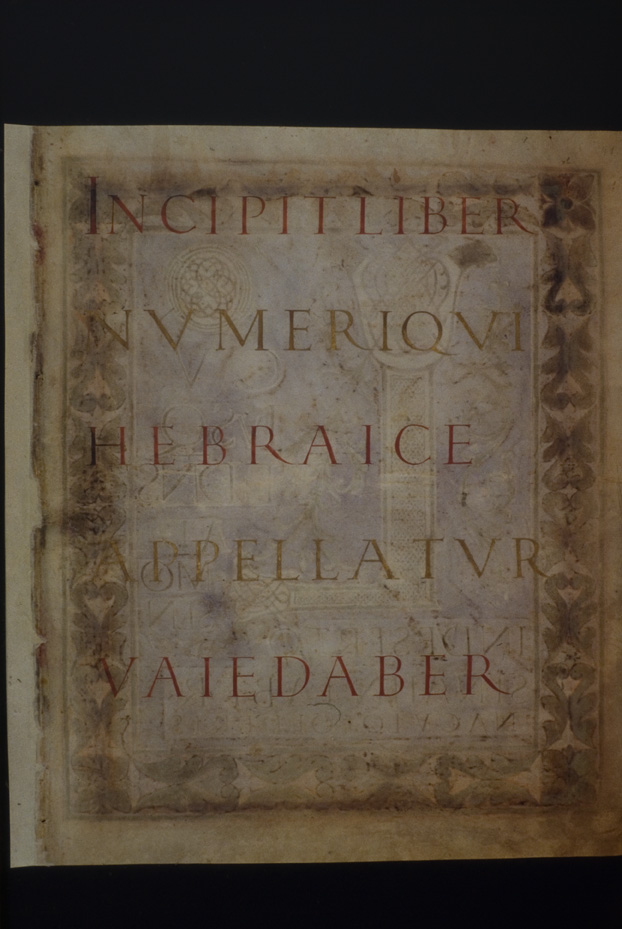 INCIPIT LIBER
NVMERI QVI
HEBRAICE
APPELLATVR
VAIEDABER